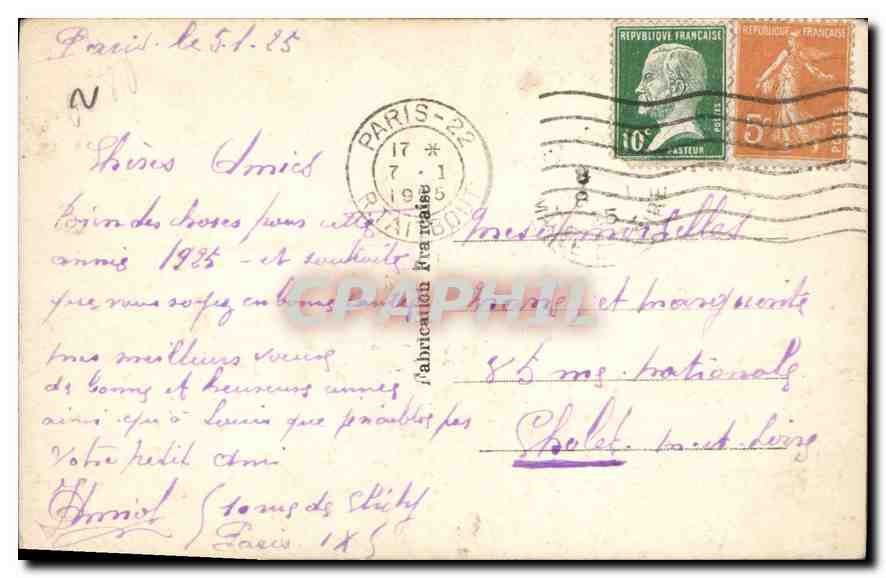 Paris le 5.1.25
N
Chères Amies
bien des choses pour cette
année 1925 - et souhaite
que vous soyez en bonne santé
mes meilleurs vœux
de bonne et heureuse année
ainsi qu'à Louis que je n'oublie pas
Votre petit Ami
10 rue de Clichy
Paris IX
PARIS-22
17 *
7 - 1
1925
R. TAITBOUT
Fabrication Française
REPVBLIQVE FRANÇAISE
10c
POSTES
PASTEUR
REPUBLIQUE FRANÇAISE
5c
POSTES
Mesdemoiselles
et Marguerite
85 rue Nationale
Cholet M-et-Loire
CPAPHIL